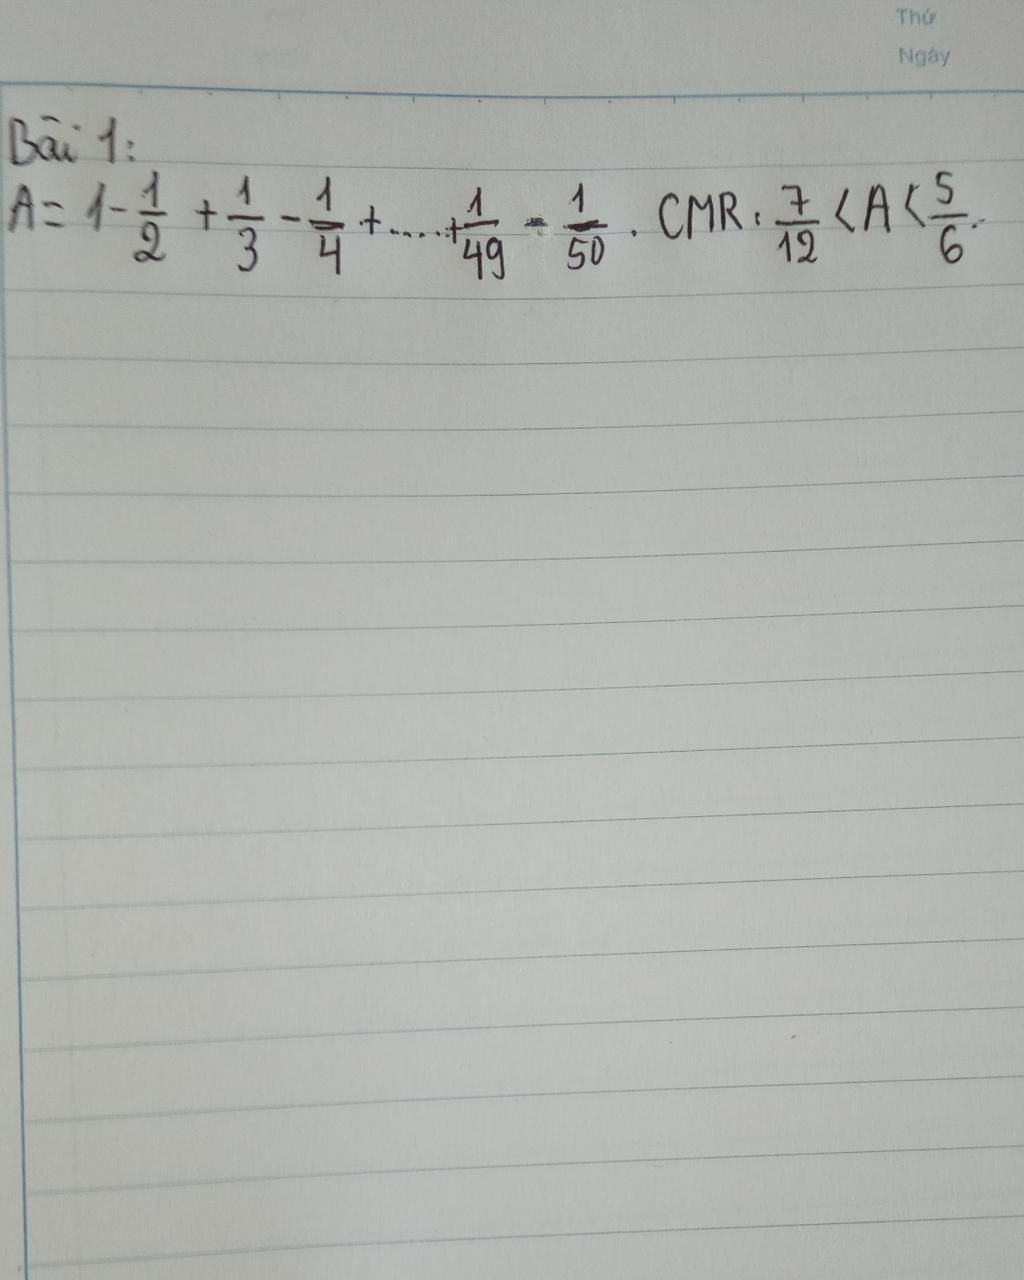 Thứ
Ngày
Bài 1:
A = 1 - 1/2 + 1/3 - 1/4 + ..... + 1/49 - 1/50 . CMR: 7/12 < A < 5/6.